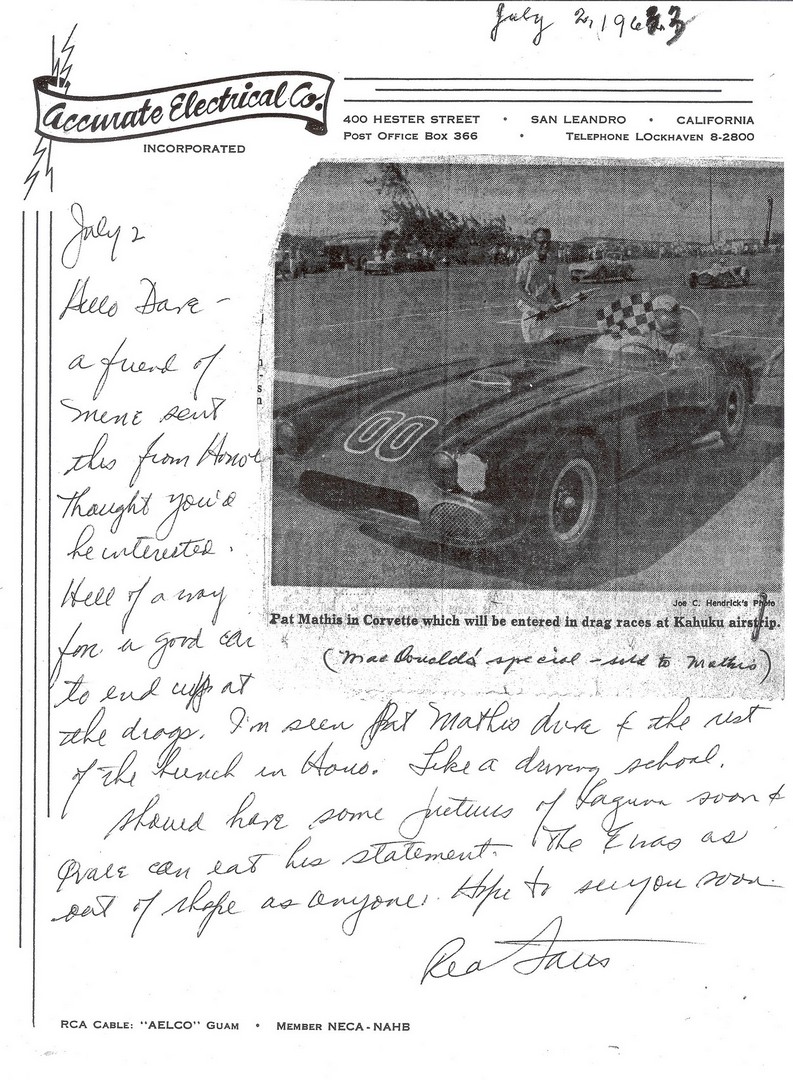 July 2, 1963
Accurate Electrical Co.
INCORPORATED
400 HESTER STREET • SAN LEANDRO • CALIFORNIA
POST OFFICE BOX 366 • TELEPHONE LOCKHAVEN 8-2800
July 2
Hello Dave -
a friend of
mine sent
this from Hono
Thought you'd
be interested.
Hell of a way
for a good car
to end up at
00
Joe C. Hendrick's Photo
Pat Mathis in Corvette which will be entered in drag races at Kahuku airstrip.
(MacDonald's special - sold to Mathis)
the drags. I've seen Pat Mathis drive & the rest
of the bunch in Hono. Like a driving school.
Should have some pictures of Laguna soon &
can eat his statement. The E was as
out of shape as anyone. Hope to see you soon
RCA CABLE: "AELCO" GUAM • MEMBER NECA-NAHB